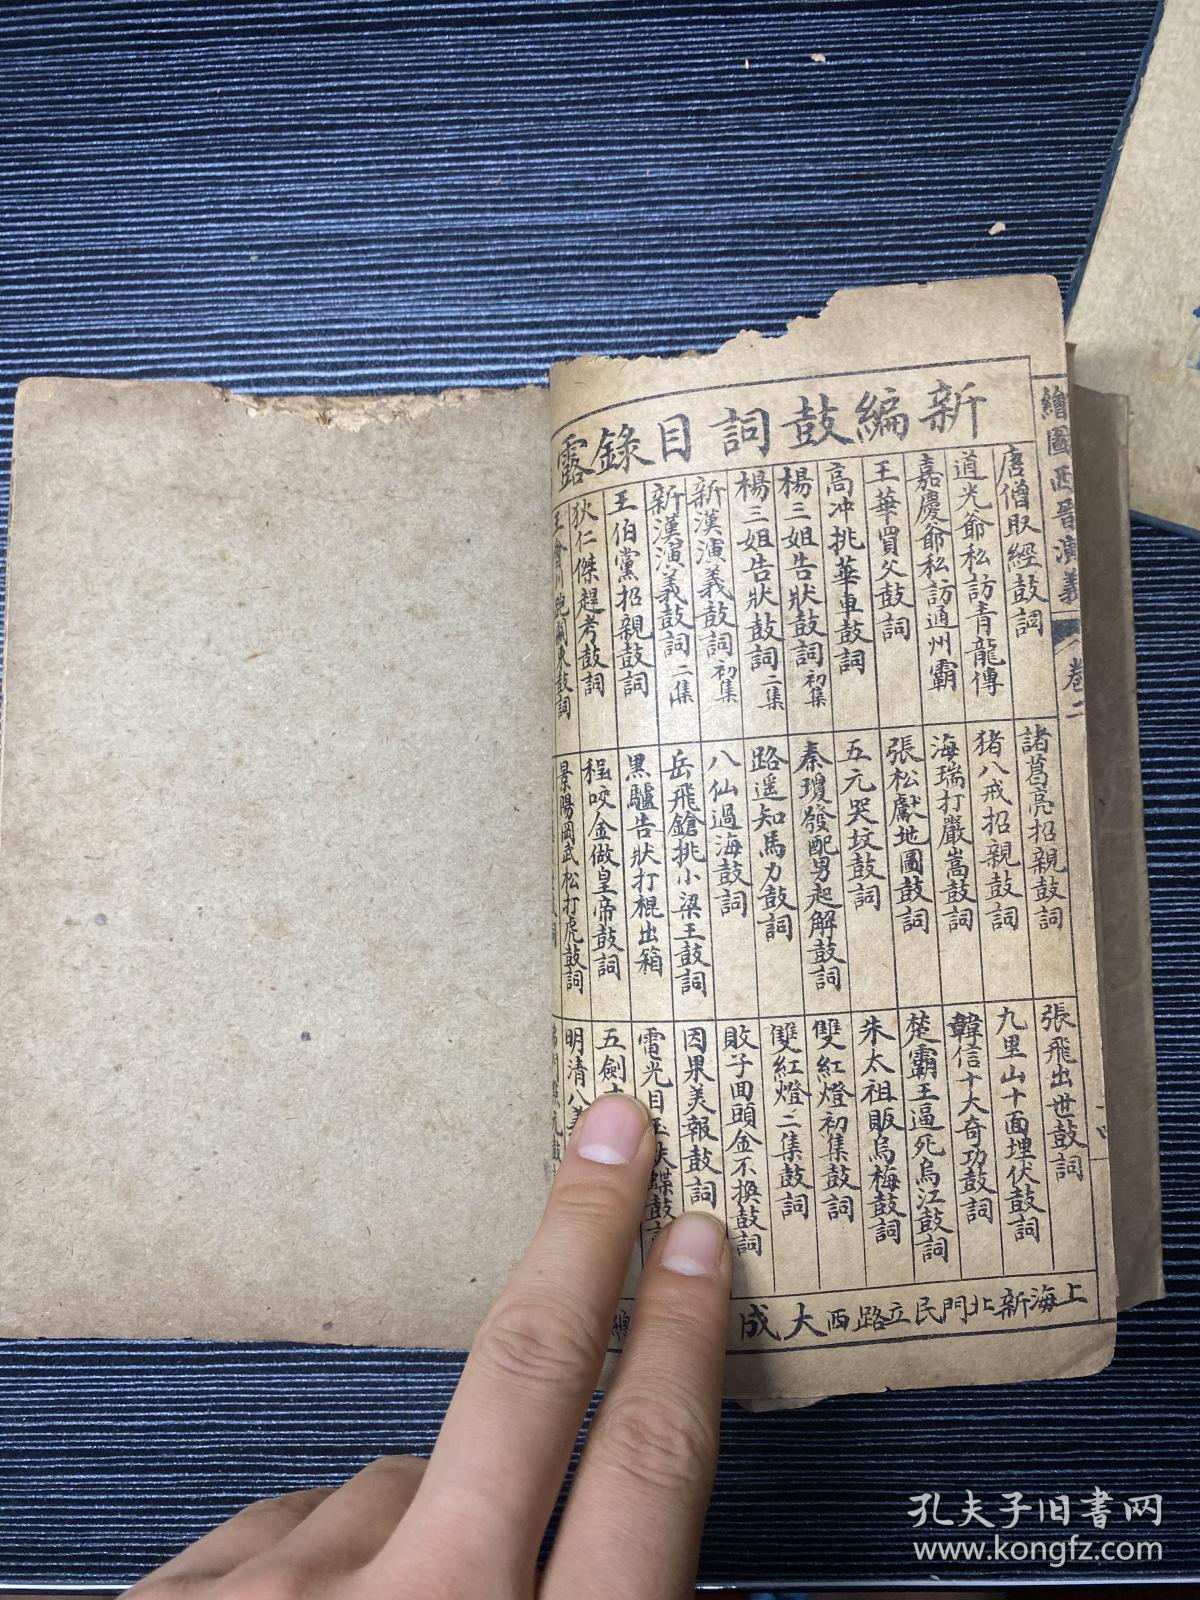 繪圖西晉演義
卷二
十四
新編鼓詞目錄露
唐僧取經鼓詞
道光爺私訪青龍傳
嘉慶爺私訪通州霸
王華買父鼓詞
高冲挑華車鼓詞
楊三姐告狀鼓詞初集
楊三姐告狀鼓詞二集
新漢演義鼓詞初集
新漢演義鼓詞二集
王伯黨招親鼓詞
狄仁傑趕考鼓詞
王會川跑關東鼓詞
諸葛亮招親鼓詞
猪八戒招親鼓詞
海瑞打嚴嵩鼓詞
張松獻地圖鼓詞
五元哭坟鼓詞
秦瓊發配男起解鼓詞
路遥知馬力鼓詞
八仙過海鼓詞
岳飛鎗挑小梁王鼓詞
黑驢告狀打棍出箱
程咬金做皇帝鼓詞
景陽岡武松打虎鼓詞
張飛出世鼓詞
九里山十面埋伏鼓詞
韓信十大奇功鼓詞
楚霸王逼死烏江鼓詞
朱太祖販烏梅鼓詞
雙紅燈初集鼓詞
雙紅燈二集鼓詞
敗子回頭金不換鼓詞
因果美報鼓詞
雷光目玉蝶鼓
五劍
明清八美
上海新北門民立路西大成
孔夫子旧书网
www.kongfz.com